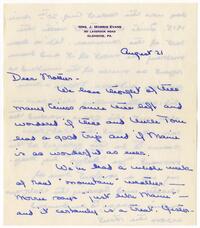 MRS. J. MORRIS EVANS
GLENSIDE, PA.
August 21
Dear Mother -
We have thought of thee
many times since thee left and
wondered if thee and Uncle Tom
had a good trip and if Maine
is as wonderful as ever.
We've had a whole week
of real "mountain" weather -
Morrie says "just like Maine" -
and it certainly is a treat.